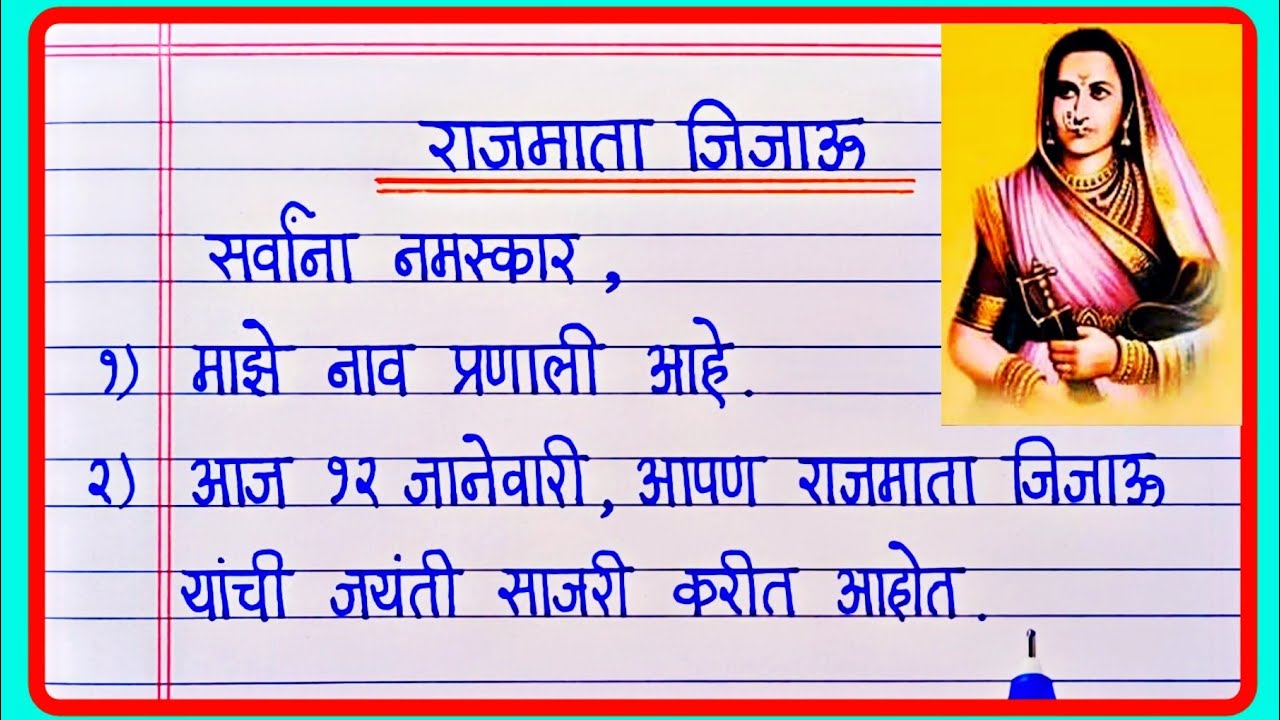 राजमाता जिजाऊ
सर्वांना नमस्कार,
१) माझे नाव प्रणाली आहे.
२) आज १२ जानेवारी, आपण राजमाता जिजाऊ
यांची जयंती साजरी करीत आहोत.